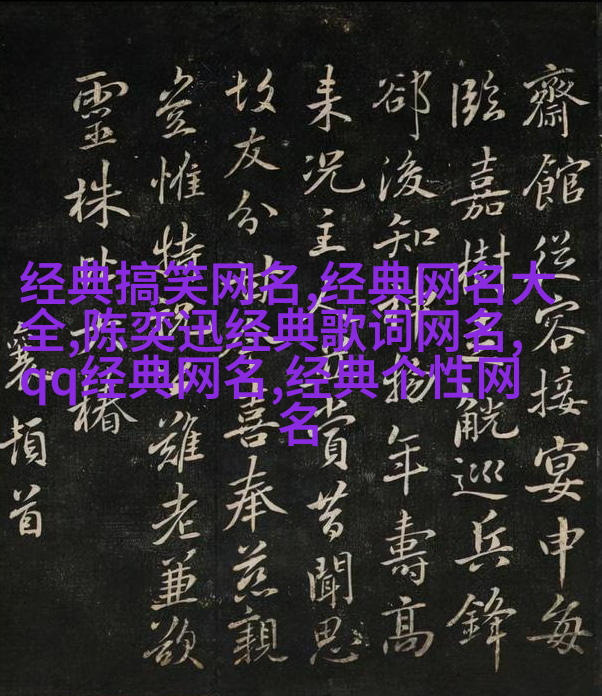 经典搞笑网名,经典网名大
全,陈奕迅经典歌词网名,
qq经典网名,经典个性网
名
齋館從容接宴申每
臨嘉樹觥巡兵鋒
郤後知年壽高
来況主賞昔聞思
故友分喜奉慈親
豈惟特難老兼欲
靈株椿
襄頓首